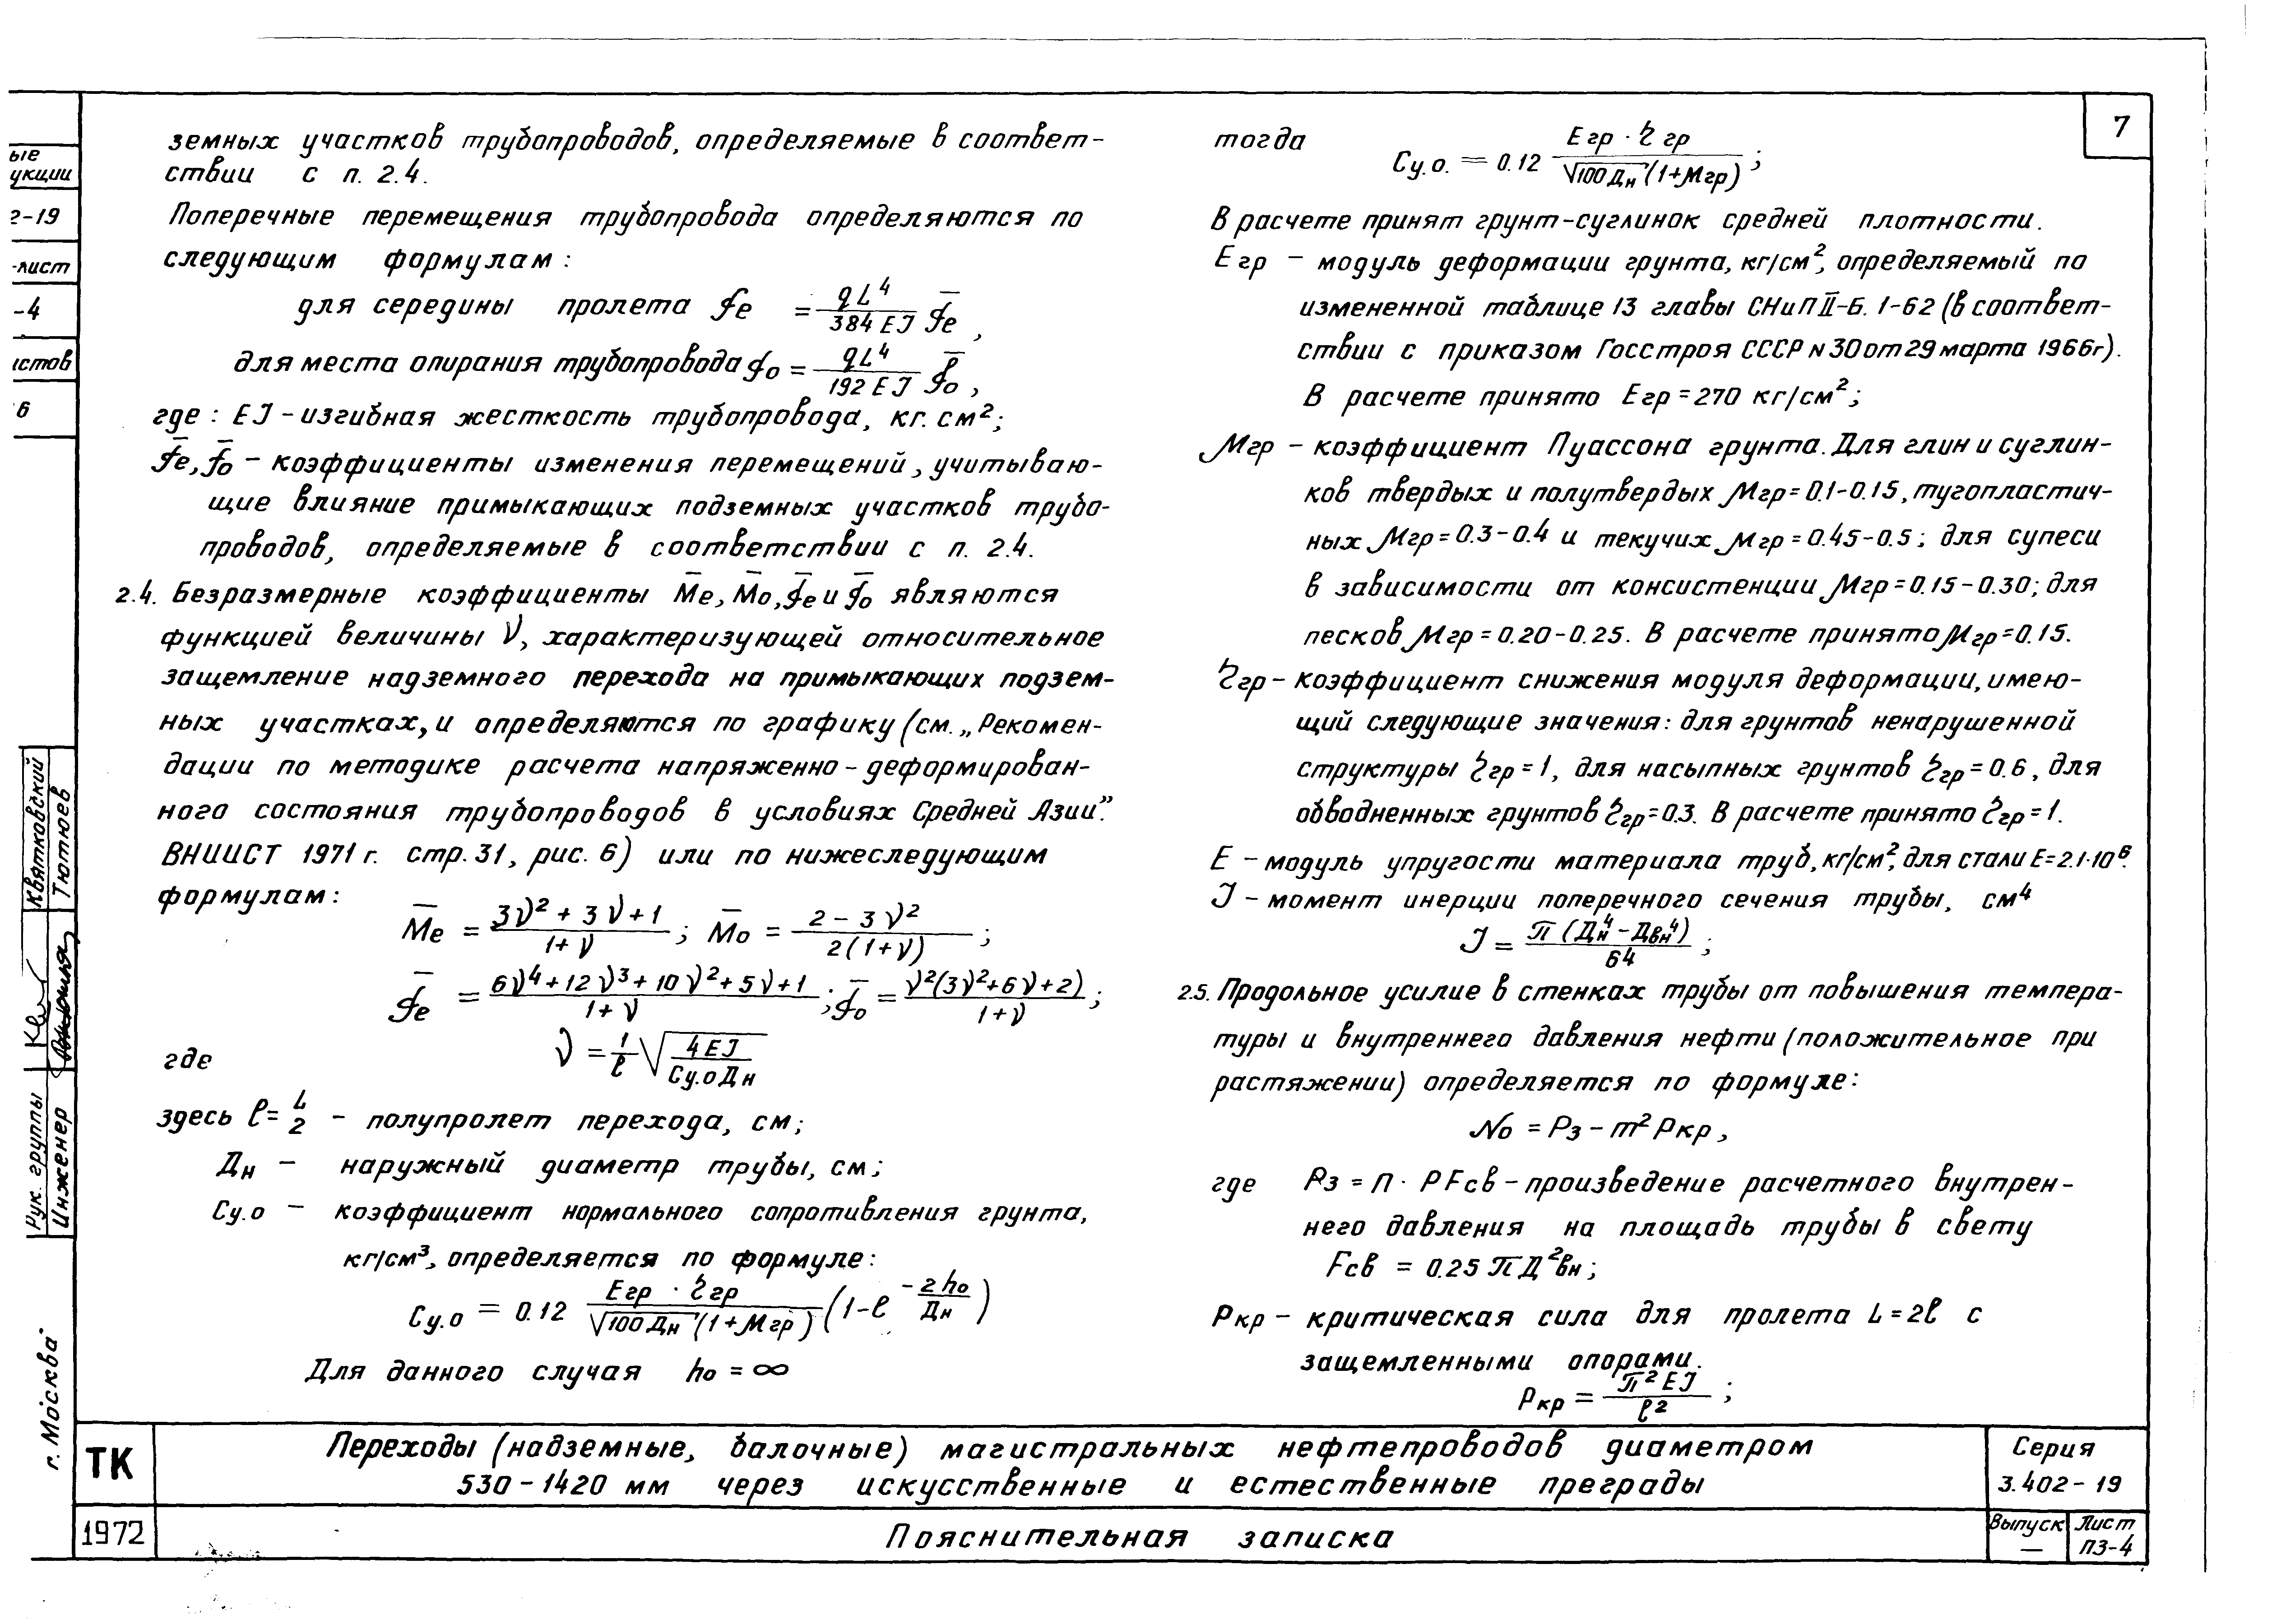 7
земных участков трубопроводов, определяемые в соответ-
ствии с п. 2.4.
Поперечные перемещения трубопровода определяются по
следующим формулам:
для середины пролета fе = qL⁴/384 EJ f̄е,
для места опирания трубопровода fо = qL⁴/192 EJ f̄о,
где: EJ - изгибная жесткость трубопровода, кг. см²;
f̄е, f̄о - коэффициенты изменения перемещений, учитываю-
щие влияние примыкающих подземных участков трубо-
проводов, определяемые в соответствии с п. 2.4.
2.4. Безразмерные коэффициенты M̄е, M̄о, f̄е и f̄о являются
функцией величины ν, характеризующей относительное
защемление надземного перехода на примыкающих подзем-
ных участках, и определяются по графику (см. „Рекомен-
дации по методике расчета напряженно-деформирован-
ного состояния трубопроводов в условиях Средней Азии".
ВНИИСТ 1971 г. стр. 31, рис. 6) или по нижеследующим
формулам:
M̄е = (3ν² + 3ν + 1)/(1 + ν); M̄о = (2 - 3ν²)/(2(1 + ν));
f̄е = (6ν⁴ + 12ν³ + 10ν² + 5ν + 1)/(1 + ν); f̄о = ν²(3ν² + 6ν + 2)/(1 + ν);
где ν = 1/ℓ √(4EJ/Су.о Дн)
здесь ℓ = L/2 - полупролет перехода, см;
Дн - наружный диаметр трубы, см;
Су.о - коэффициент нормального сопротивления грунта,
кг/см³, определяется по формуле:
Су.о = 0.12 Егр · ηгр/(√100 Дн (1 + μгр)) (1 - ℓ^(-2hо/Дн))
Для данного случая hо = ∞
тогда Су.о. = 0.12 Егр · ηгр/(√100 Дн (1 + μгр));
В расчете принят грунт-суглинок средней плотности.
Егр - модуль деформации грунта, кг/см², определяемый по
измененной таблице 13 главы СНиП II-Б. 1-62 (в соответ-
ствии с приказом Госстроя СССР N 30 от 29 марта 1966г).
В расчете принято Егр = 270 кг/см²;
μгр - коэффициент Пуассона грунта. Для глин и суглин-
ков твердых и полутвердых μгр = 0.1-0.15, тугопластич-
ных μгр = 0.3-0.4 и текучих μгр = 0.45-0.5; для супеси
в зависимости от консистенции μгр = 0.15-0.30; для
песков μгр = 0.20-0.25. В расчете принято μгр = 0.15.
ηгр - коэффициент снижения модуля деформации, имею-
щий следующие значения: для грунтов ненарушенной
структуры ηгр = 1, для насыпных грунтов ηгр = 0.6, для
обводненных грунтов ηгр = 0.3. В расчете принято ηгр = 1.
Е - модуль упругости материала труб, кг/см², для стали Е = 2.1·10⁶.
J - момент инерции поперечного сечения трубы, см⁴
J = π (Дн⁴ - Двн⁴)/64;
2.5. Продольное усилие в стенках трубы от повышения темпера-
туры и внутреннего давления нефти (положительное при
растяжении) определяется по формуле:
Nо = Рз - m² Ркр,
где Рз = п · РFсв - произведение расчетного внутрен-
него давления на площадь трубы в свету
Fсв = 0.25 π Д²вн;
Ркр - критическая сила для пролета L = 2ℓ с
защемленными опорами.
Ркр = π² EJ/ℓ²;
ТК
1972
Переходы (надземные, балочные) магистральных нефтепроводов диаметром
530-1420 мм через искусственные и естественные преграды
Пояснительная записка
Серия
3.402-19
Выпуск
—
Лист
ПЗ-4
ые
укции
2-19
-лист
-4
истов
6
Квятковский
Тютюев
Рук. группы
Инженер
г. Москва